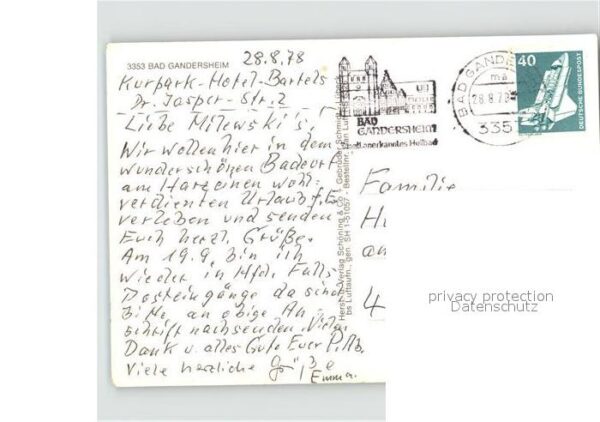 3353 BAD GANDERSHEIM
28.8.78
Kurpark-Hotel-Bartels
Dr. Jasper-Str. 2
Liebe Milewski's,
Wir wollen hier in dem
wunderschönen Badeort
am Harz einen wohl-
verdienten Urlaub
verleben und senden
Euch herzl. Grüße.
Am 19.9. bin ich
wieder in Hfd. Falls
Posteingänge da sind
bitte an obige An-
schrift nachsenden. Vielen
Dank u. alles Gute Euer
Viele herzliche Grüße
Emma.
Herst. u. Verlag Schöning & Co. + Gebrüder Schmidt
bs Luftaufn., gen. SH 1-51057 - Bestellnr.
BAD
GANDERSHEIM
Staatl. anerkanntes Heilbad
BAD GANDE
ma
28.8.7
335
40
DEUTSCHE BUNDESPOST
Familie
H
an
4
privacy protection
Datenschutz